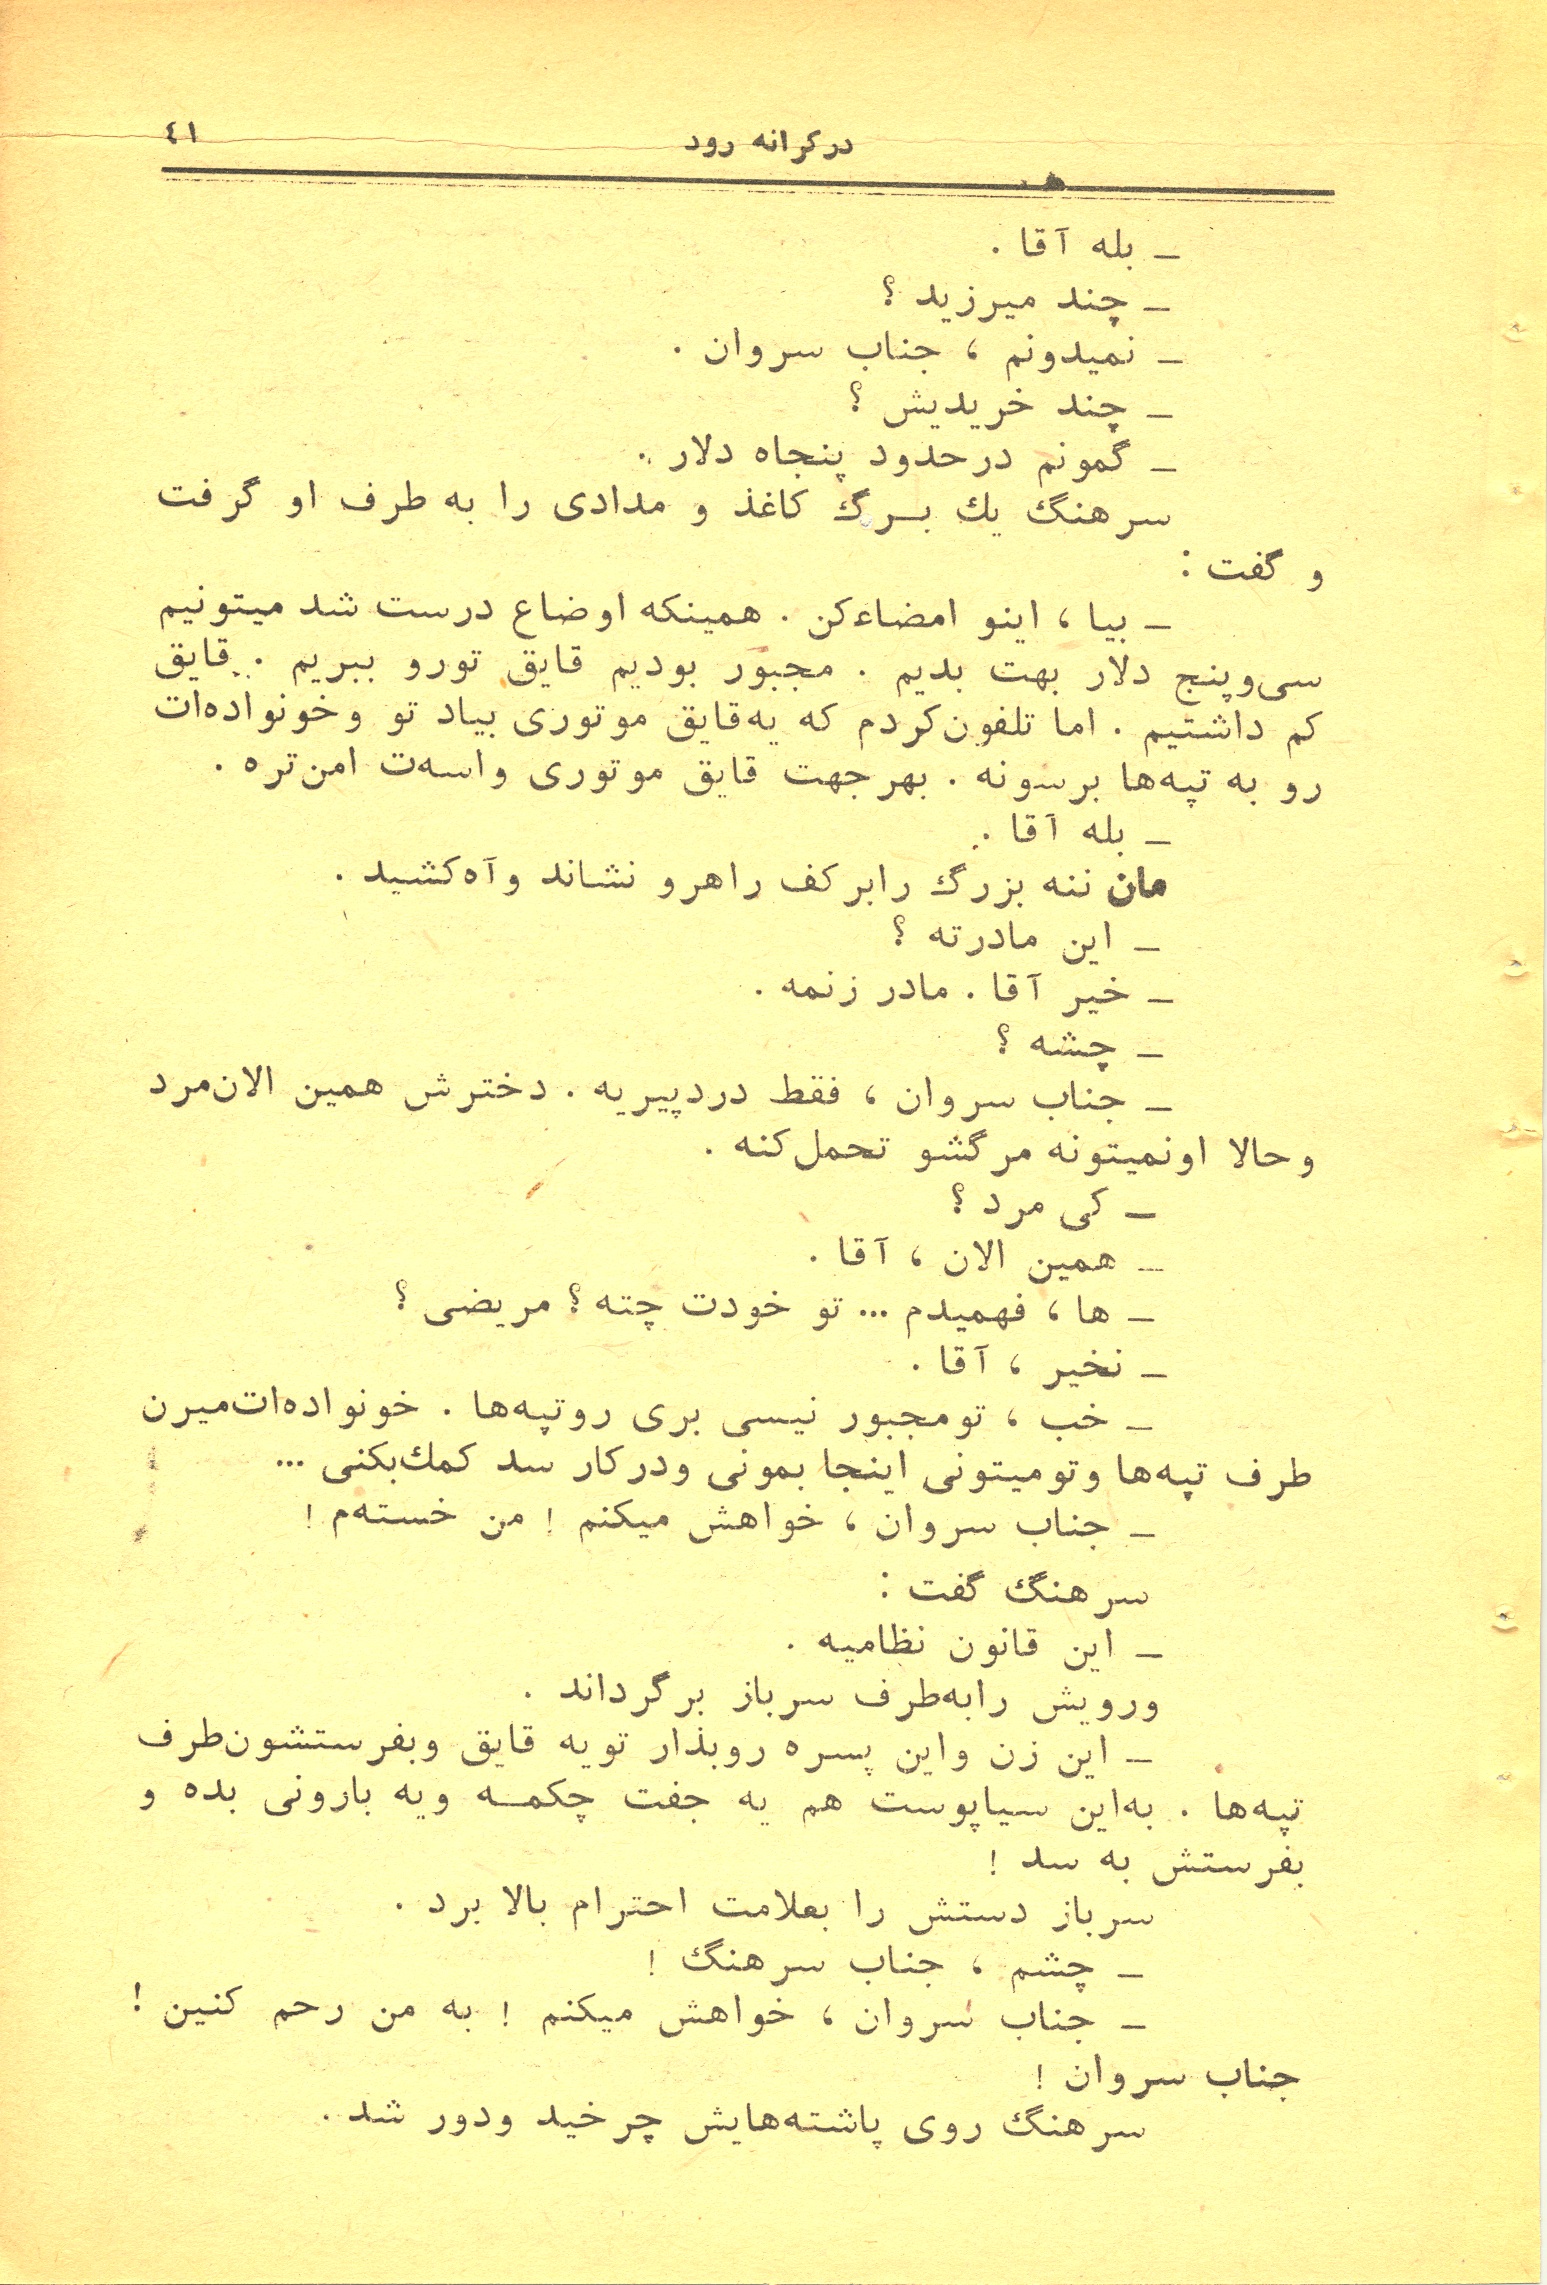 در کرانه رود
٤١
ـ بله آقا .
ـ چند میرزید ؟
ـ نمیدونم ، جناب سروان .
ـ چند خریدیش ؟
ـ گمونم درحدود پنجاه دلار .
سرهنگ یك بــرگ کاغذ و مدادی را به طرف او گرفت
و گفت :
ـ بیا ، اینو امضاءکن . همینکه اوضاع درست شد میتونیم
سی‌وپنج دلار بهت بدیم . مجبور بودیم قایق تورو ببریم . قایق
کم داشتیم . اما تلفون‌کردم که یه‌قایق موتوری بیاد تو وخونواده‌ات
رو به تپه‌ها برسونه . بهرجهت قایق موتوری واسه‌ت امن‌تره .
ـ بله آقا .
مان ننه بزرگ رابرکف راهرو نشاند وآه‌کشید .
ـ این مادرته ؟
ـ خیر آقا . مادر زنمه .
ـ چشه ؟
ـ جناب سروان ، فقط دردپیریه . دخترش همین الان‌مرد
وحالا اونمیتونه مرگشو تحمل‌کنه .
ـ کی مرد ؟
ـ همین الان ، آقا .
ـ ها ، فهمیدم ... تو خودت چته ؟ مریضی ؟
ـ نخیر ، آقا .
ـ خب ، تومجبور نیسی بری روتپه‌ها . خونواده‌ات‌میرن
طرف تپه‌ها وتومیتونی اینجا بمونی ودرکار سد کمك‌بکنی ...
ـ جناب سروان ، خواهش میکنم ! من خسته‌م !
سرهنگ گفت :
ـ این قانون نظامیه .
ورویش رابه‌طرف سرباز برگرداند .
ـ این زن واین پسره روبذار تویه قایق وبفرستشون‌طرف
تپه‌ها . به‌این سیاپوست هم یه جفت چکمــه ویه بارونی بده و
بفرستش به سد !
سرباز دستش را بعلامت احترام بالا برد .
ـ چشم ، جناب سرهنگ !
ـ جناب سروان ، خواهش میکنم ! به من رحم کنین !
جناب سروان !
سرهنگ روی پاشته‌هایش چرخید ودور شد .